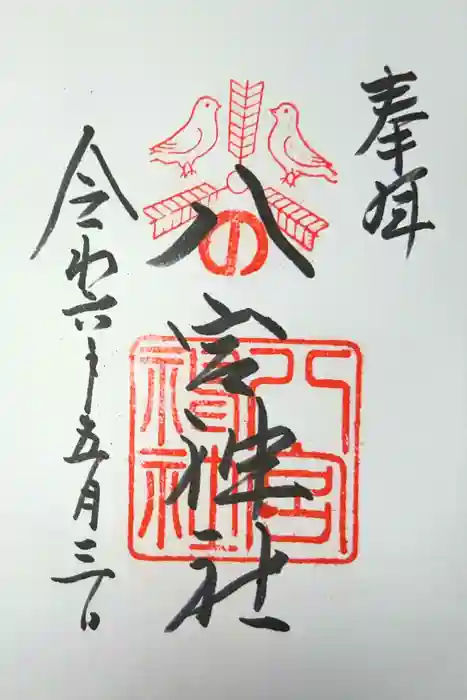 奉拝
八宮神社
の
八宮
神社
令和六年五月三日